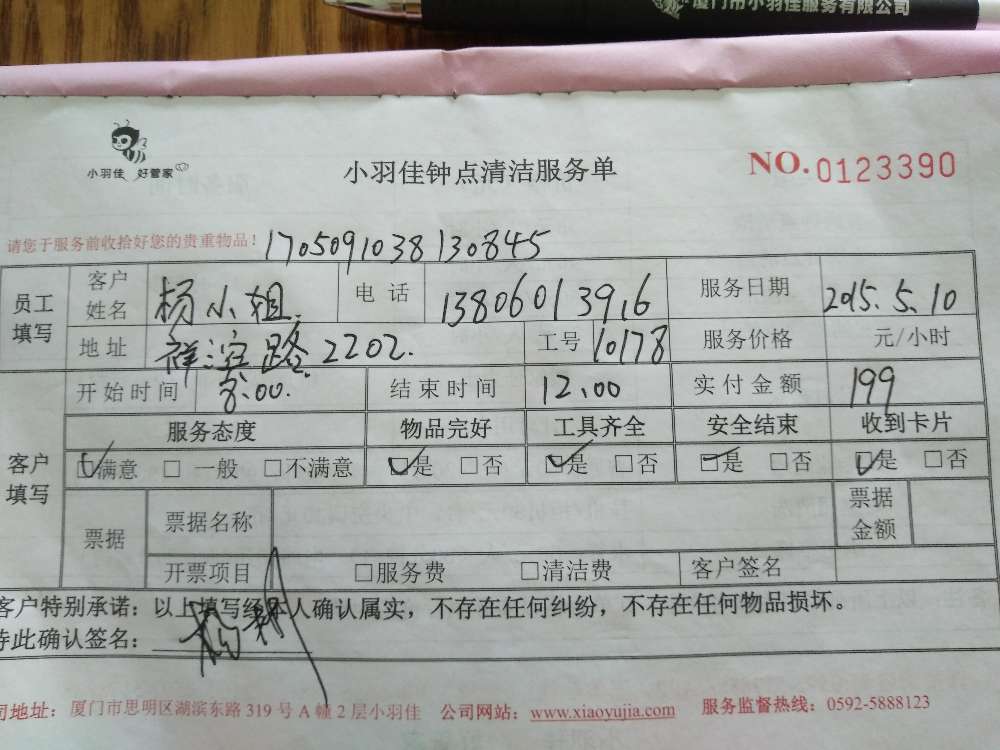 厦门市小羽佳服务有限公司
小羽佳 好管家
小羽佳钟点清洁服务单
NO.0123390
请您于服务前收拾好您的贵重物品！ 1705091038130845
员工填写 客户姓名 杨小姐 电话 13806013916 服务日期 2015.5.10
地址 祥滨路2202. 工号 10178 服务价格 元/小时
开始时间 8:00. 结束时间 12.00 实付金额 199
客户填写 服务态度 物品完好 工具齐全 安全结束 收到卡片
☑满意 □ 一般 □不满意 ☑是 □否 ☑是 □否 ☑是 □否 ☑是 □否
票据 票据名称 票据金额
开票项目 □服务费 □清洁费 客户签名
客户特别承诺：以上填写经本人确认属实，不存在任何纠纷，不存在任何物品损坏。
特此确认签名： 杨
司地址：厦门市思明区湖滨东路 319 号 A 幢 2 层小羽佳 公司网站：www.xiaoyujia.com 服务监督热线：0592-5888123